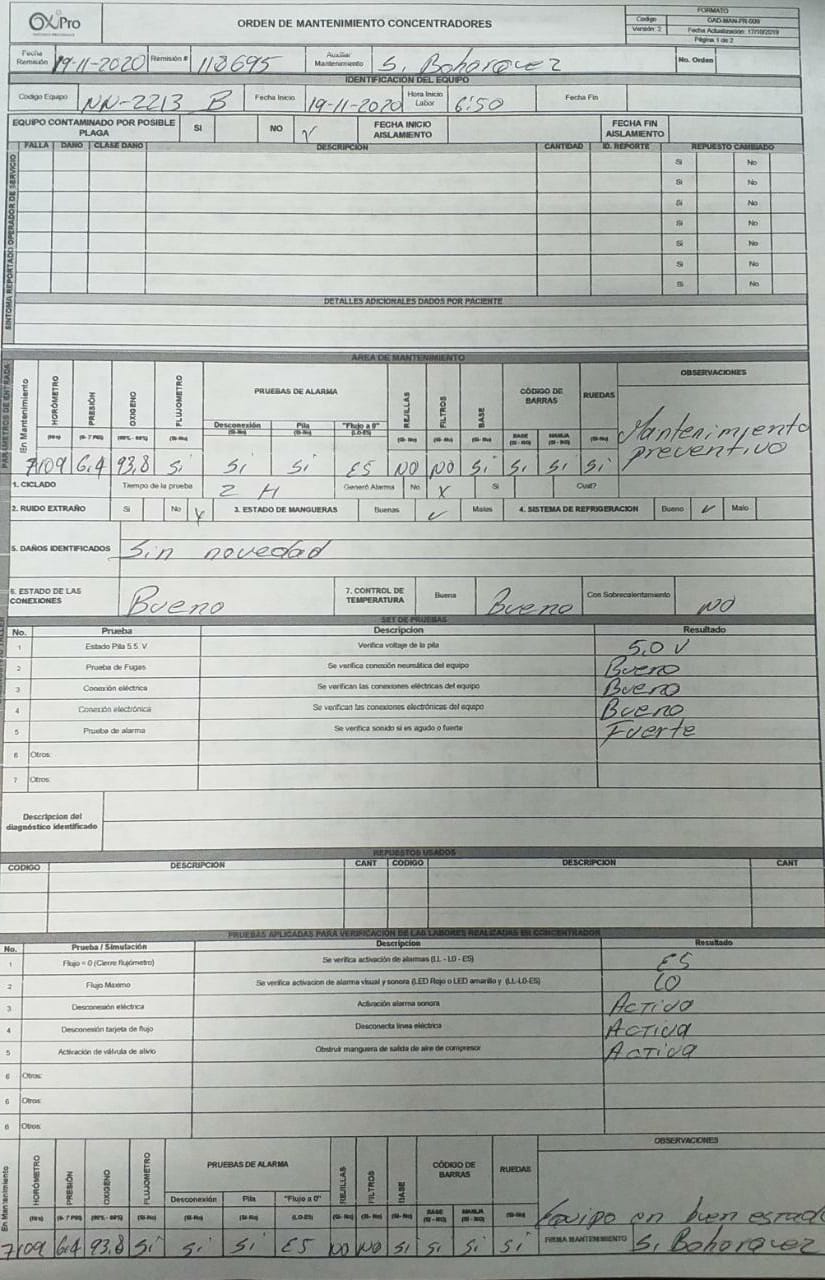 OxiPro
ORDEN DE MANTENIMIENTO CONCENTRADORES
FORMATO
Codigo OAD-MAN-FR-009
Versión: 2 Fecha Actualización: 17/10/2019
Página 1 de 2
Fecha Remisión 19-11-2020 Remisión # 118695 Auxiliar Mantenimiento S. Bohorquez No. Orden
IDENTIFICACIÓN DEL EQUIPO
Codigo Equipo NN-2213 B Fecha Inicio 19-11-2020 Hora Inicio Labor 6:50 Fecha Fin
EQUIPO CONTAMINADO POR POSIBLE PLAGA SI NO FECHA INICIO AISLAMIENTO FECHA FIN AISLAMIENTO
SINTOMA REPORTADO OPERADOR DE SERVICIO
FALLA DAÑO CLASE DAÑO DESCRIPCION CANTIDAD ID. REPORTE REPUESTO CAMBIADO
Si No
Si No
Si No
Si No
Si No
Si No
Si No
DETALLES ADICIONALES DADOS POR PACIENTE
AREA DE MANTENIMIENTO
PARÁMETROS DE ENTRADA
En Mantenimiento HORÓMETRO PRESIÓN OXIGENO FLUJOMETRO PRUEBAS DE ALARMA REJILLAS FILTROS BASE CÓDIGO DE BARRAS RUEDAS OBSERVACIONES
Desconexión Pila "Flujo a 0"
(Hrs) (6- 7 PSI) (Si-No) (Si-No) (Si-No) (LO-ES) (Si- No) (Si- No) (Si- No) BASE (SI - NO) MANIJA (SI - NO) (Si-No)
7109 6,4 93,8 Si Si Si ES NO NO Si Si Si Si Mantenimiento
preventivo
1. CICLADO Tiempo de la prueba 2 H Generó Alarma No X Si Cual?
2. RUIDO EXTRAÑO Si No X 3. ESTADO DE MANGUERAS Buenas ✓ Malas 4. SISTEMA DE REFRIGERACION Bueno ✓ Malo
5. DAÑOS IDENTIFICADOS Sin novedad
6. ESTADO DE LAS CONEXIONES Bueno 7. CONTROL DE TEMPERATURA Buena Bueno Con Sobrecalentamiento NO
SET DE PRUEBAS
No. Prueba Descripcion Resultado
1 Estado Pila 5.5. V Verifica voltaje de la pila 5,0 V
2 Prueba de Fugas Se verifica conexión neumática del equipo Bueno
3 Conexión eléctrica Se verifican las conexiones eléctricas del equipo Bueno
4 Conexión electrónica Se verifican las conexiones electrónicas del equipo Bueno
5 Prueba de alarma Se verifica sonido si es agudo o fuerte Fuerte
6 Otros:
7 Otros:
Descripcion del diagnóstico identificado
REPUESTOS USADOS
CODIGO DESCRIPCION CANT CODIGO DESCRIPCION CANT
PRUEBAS APLICADAS PARA VERIFICACIÓN DE LAS LABORES REALIZADAS EN CONCENTRADOR
No. Prueba / Simulación Descripcion Resultado
1 Flujo = 0 (Cierre flujómetro) Se verifica activación de alarmas (LL - L0 - ES) ES
2 Flujo Maximo Se verifica activacion de alarma visual y sonora (LED Rojo o LED amarillo y (LL-L0-ES) LO
3 Desconexión eléctrica Activación alarma sonora Activo
4 Desconexión tarjeta de flujo Desconecta linea eléctrica Activa
5 Activación de válvula de alivio Obstruir manguera de salida de aire de compresor Activa
6 Otros:
6 Otros:
6 Otros:
En Mantenimiento HORÓMETRO PRESIÓN OXIGENO FLUJOMETRO PRUEBAS DE ALARMA REJILLAS FILTROS BASE CÓDIGO DE BARRAS RUEDAS OBSERVACIONES
Desconexión Pila "Flujo a 0"
(Hrs) (6- 7 PSI) (Si-No) (Si-No) (Si-No) (LO-ES) (Si- No) (Si- No) (Si- No) BASE (SI - NO) MANIJA (SI - NO) (Si-No) Equipo en buen estado
7109 6,4 93,8 Si Si Si ES NO NO Si Si Si Si FIRMA MANTENIMIENTO S. Bohorquez